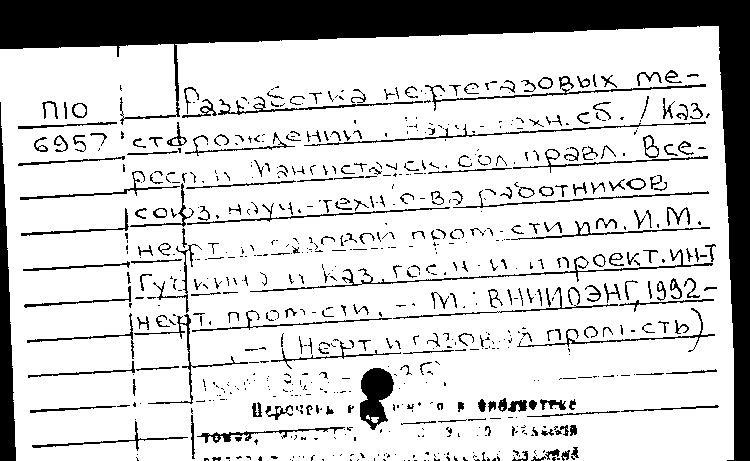 П10
6957
Разработка нефтегазовых ме-
сторождений. Науч.-техн. сб. / Каз.
респ. и Мангистауск. обл. правл. Все-
союз. науч.-техн. о-ва работников
нефт. и газовой пром-сти им. И.М.
Губкина и Каз. гос. н.-и. и проект. ин-т
нефт. пром-сти. – М.: ВНИИОЭНГ, 1992–
. – (Нефт. и газовая пром-сть)
Перечень в библиотеке
томов,